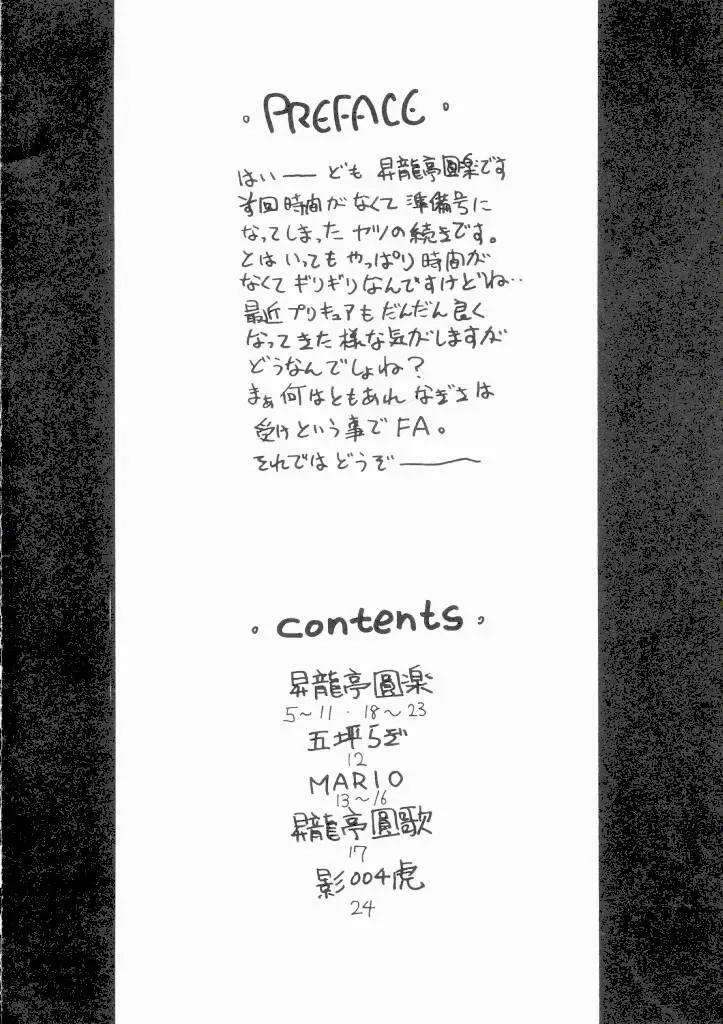 PREFACE
はいーども 昇龍亭圓楽です
前回時間がなくて準備号に
なってしまったヤツの続きです。
とはいってもやっぱり時間が
なくてギリギリなんですけどね‥
最近プリキュアもだんだん良く
なってきた様な気がしますが
どうなんでしょね?
まぁ何はともあれ なぎさは
受けという事でFA。
それではどうぞー
contents
昇龍亭圓楽
5~11・18~23
五坪らぎ
12
MARIO
13~16
昇龍亭圓歌
17
影004虎
24